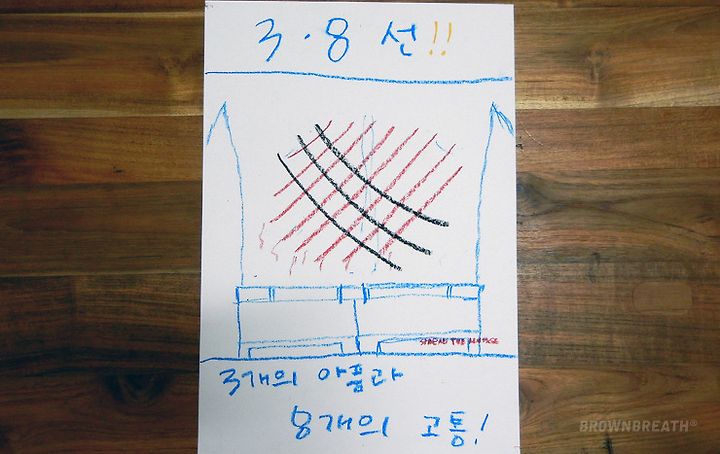 3·8 선!!
SPREAD THE MESSAGE
3개의 아픔과
8개의 고통!
BROWNBREATH®